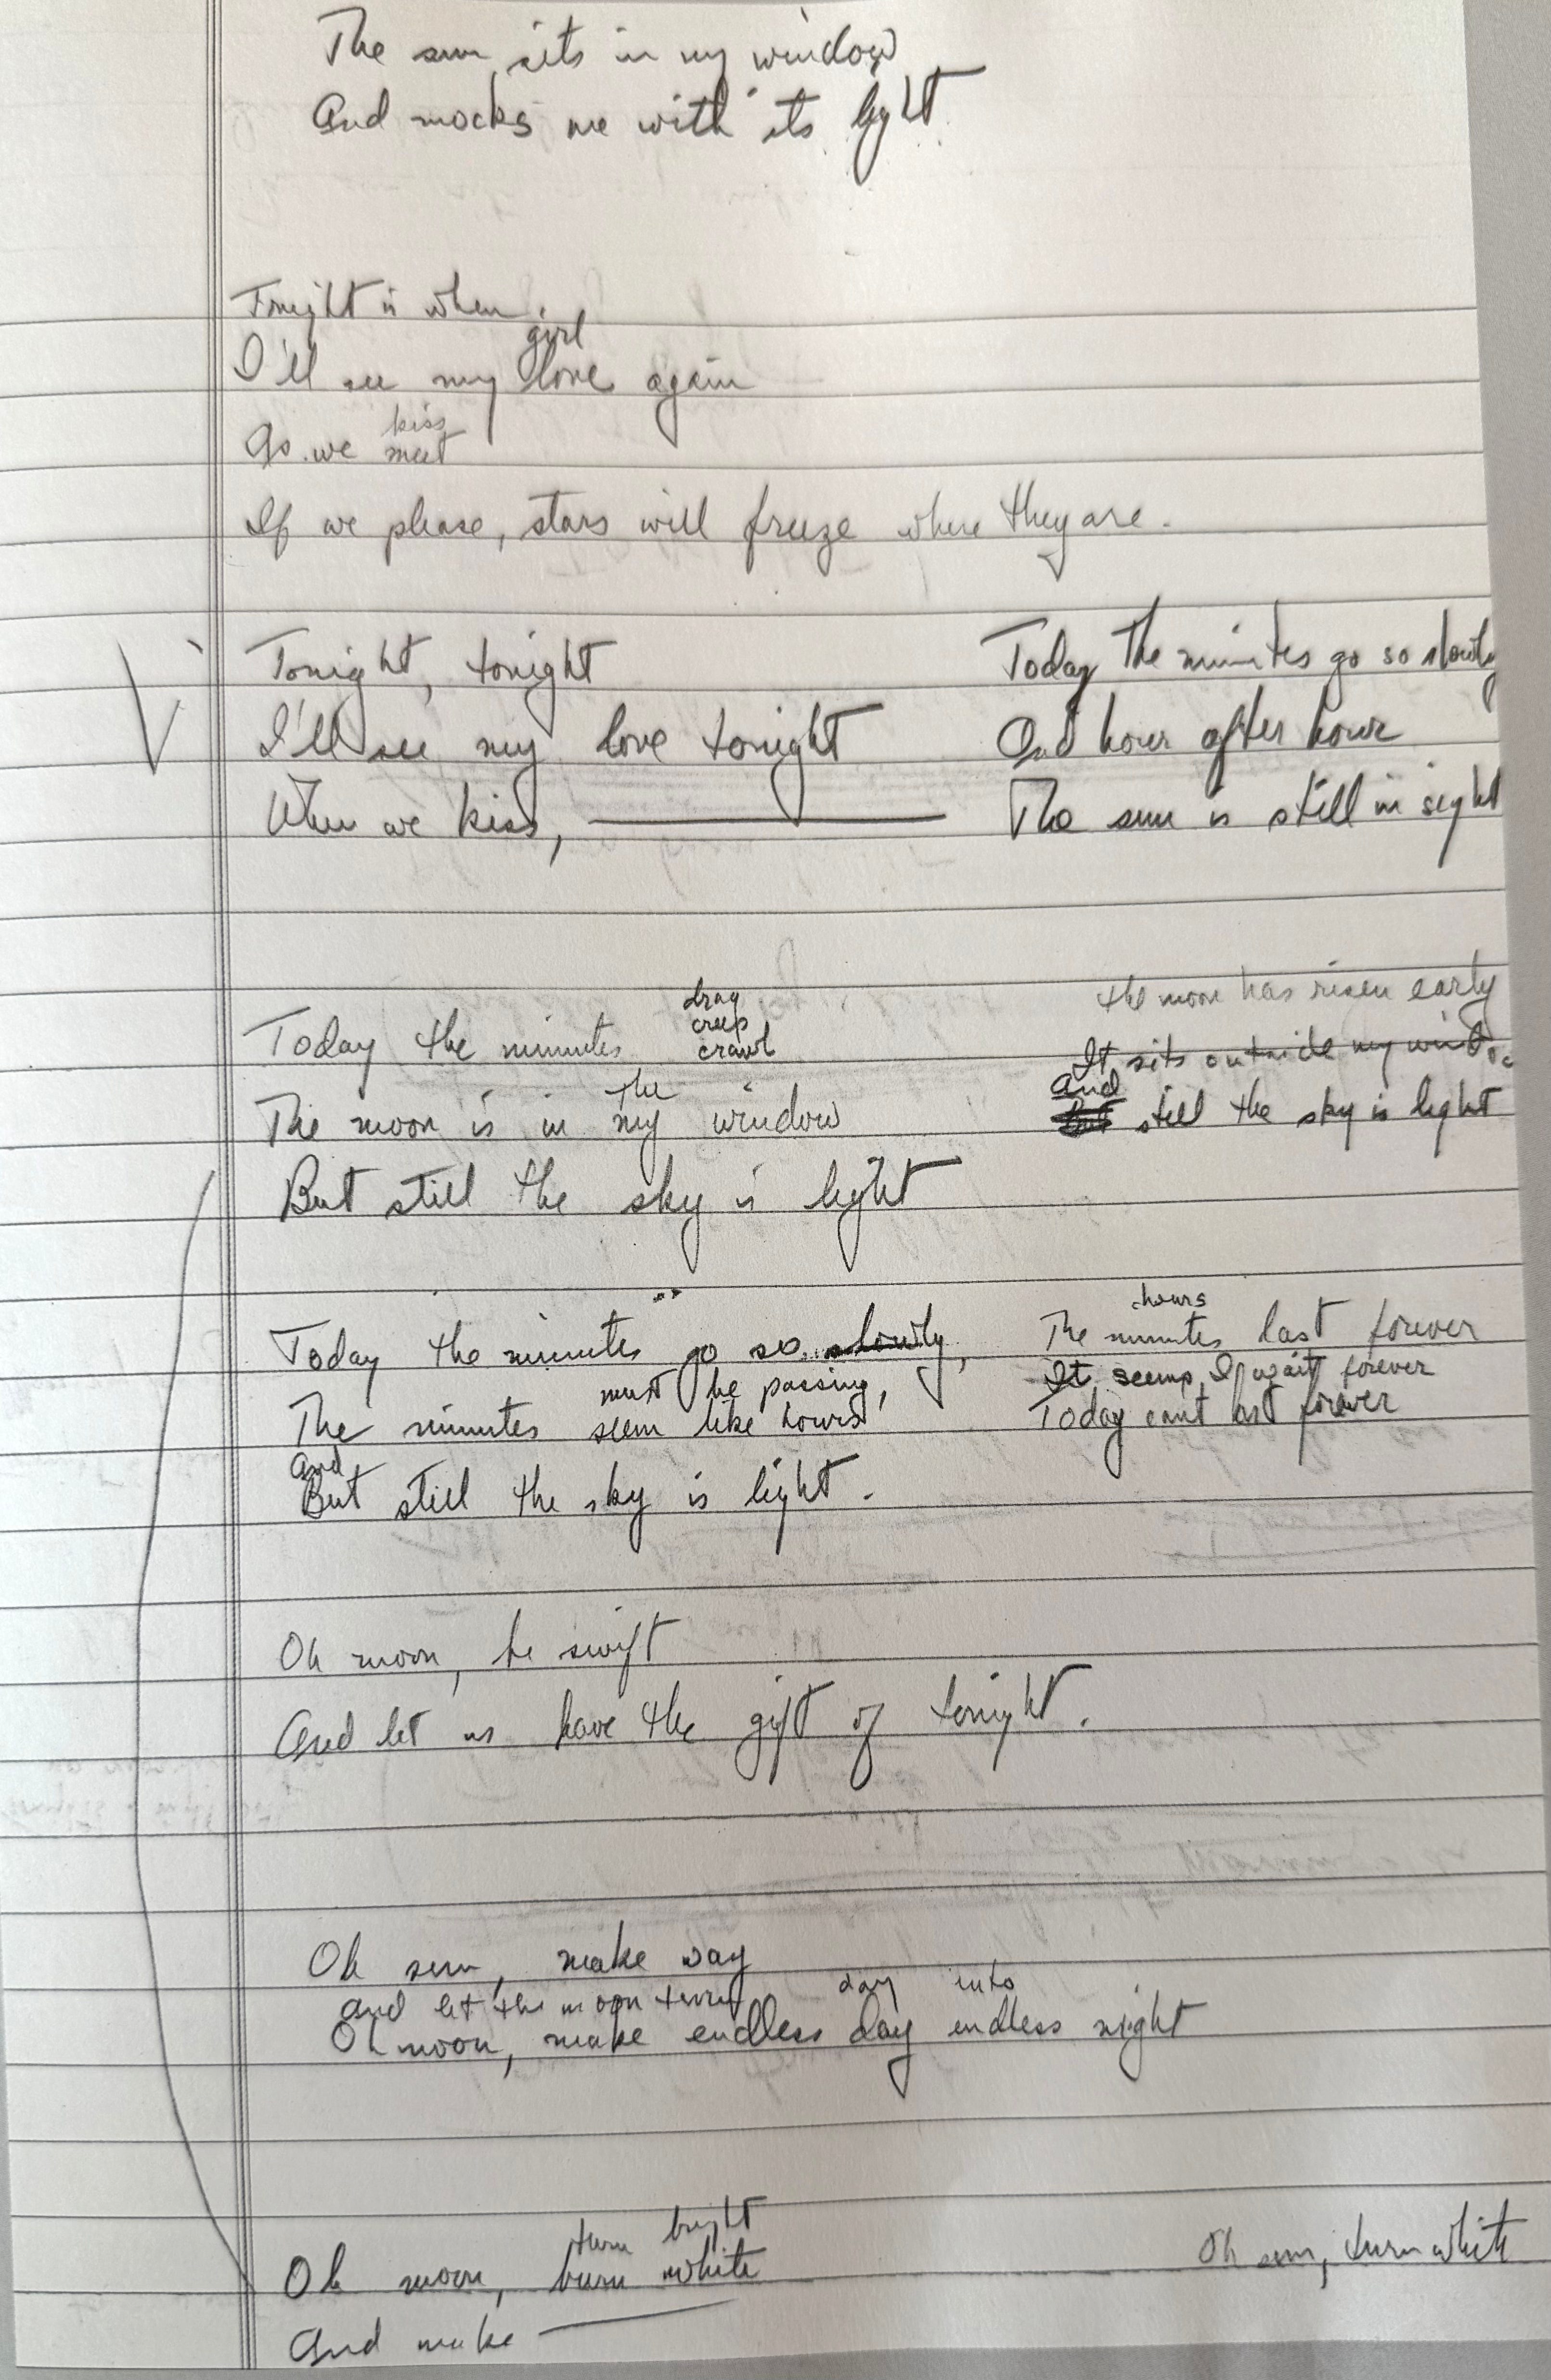 The sun sits in my window
And mocks me with its light
Tonight is when
girl
I'll see my love again
kiss
As we meet
If we please, stars will freeze where they are.
Tonight, tonight
I'll see my love tonight
When we kiss,
Today the minutes go so slowly
And hour after hour
The sun is still in sight
drag
creep
Today the minutes crawl
the
The moon is in my window
But still the sky is light
the moon has risen early
It sits outside my wind
and
But still the sky is light
Today the minutes go so slowly,
must be passing,
The minutes seem like hours
and
But still the sky is light.
hours
The minutes last forever
It seems I wait forever
Today can't last forever
Oh moon, be swift
And let us have the gift of tonight.
Oh sun, make way
and let the moon turn day into
Oh moon, make endless day endless night
turn bright
Oh moon, burn white
And make
Oh sun, turn white